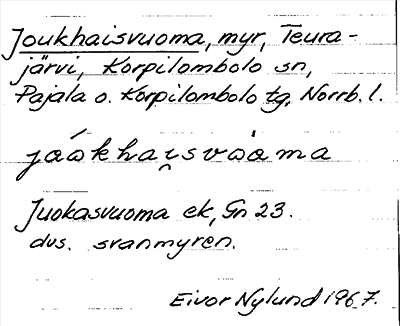 Joukhaisvuoma, myr, Teura-
järvi, Korpilombolo sn,
Pajala o. Korpilombolo tg, Norrb. l.
Juokasvuoma ek, Gn 23.
dvs. svanmyren.
Eivor Nylund 1967.